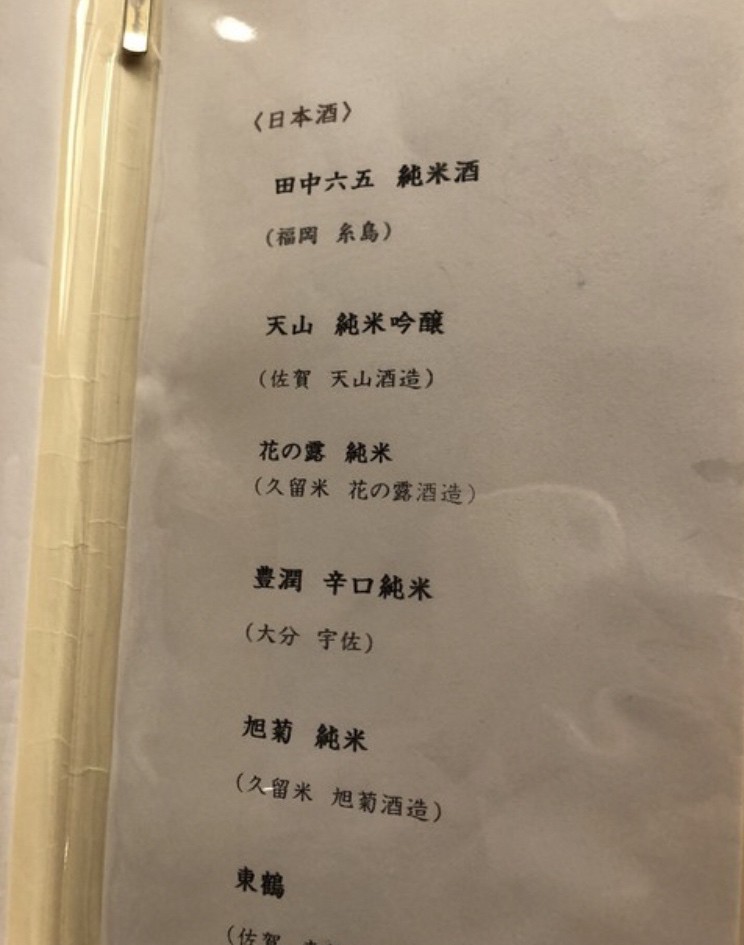 〈日本酒〉
田中六五 純米酒
(福岡 糸島)
天山 純米吟醸
(佐賀 天山酒造)
花の露 純米
(久留米 花の露酒造)
豊潤 辛口純米
(大分 宇佐)
旭菊 純米
(久留米 旭菊酒造)
東鶴
(佐賀